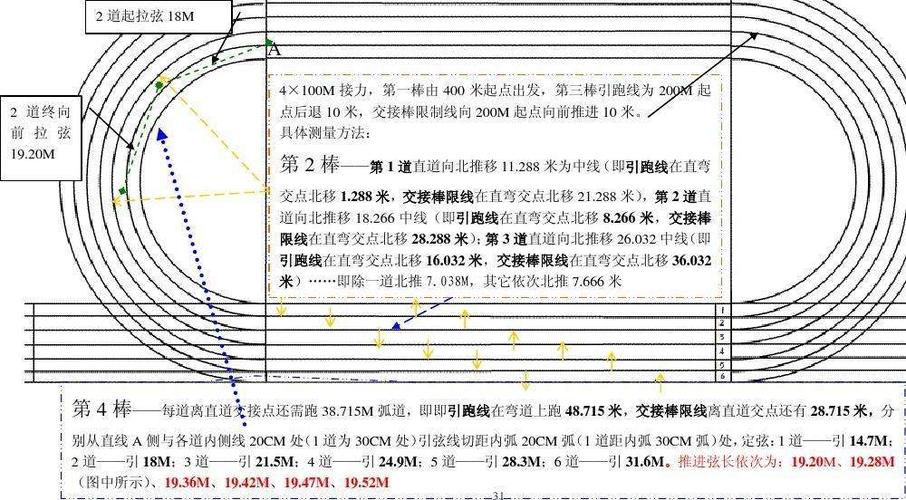 2 道起拉弦 18M
A
2 道终向
前 拉 弦
19.20M
4×100M 接力，第一棒由 400 米起点出发，第三棒引跑线为 200M 起
点后退 10 米，交接棒限制线向 200M 起点向前推进 10 米。
具体测量方法：
第 2 棒——第 1 道直道向北推移 11.288 米为中线（即引跑线在直弯
交点北移 1.288 米，交接棒限线在直弯交点北移 21.288 米），第 2 道直
道向北推移 18.266 中线（即引跑线在直弯交点北移 8.266 米，交接棒
限线在直弯交点北移 28.288 米）；第 3 道直道向北推移 26.032 中线（即
引跑线在直弯交点北移 16.032 米，交接棒限线在直弯交点北移 36.032
米）……即除一道北推 7.038M，其它依次北推 7.666 米
1
2
3
4
5
6
第 4 棒——每道离直道交接点还需跑 38.715M 弧道，即即引跑线在弯道上跑 48.715 米，交接棒限线离直道交点还有 28.715 米，分
别从直线 A 侧与各道内侧线 20CM 处（1 道为 30CM 处）引弦线切距内弧 20CM 弧（1 道距内弧 30CM 弧）处，定弦：1 道——引 14.7M；
2 道——引 18M；3 道——引 21.5M；4 道——引 24.9M；5 道——引 28.3M；6 道——引 31.6M。推进弦长依次为：19.20M、19.28M
（图中所示）、19.36M、19.42M、19.47M、19.52M
31